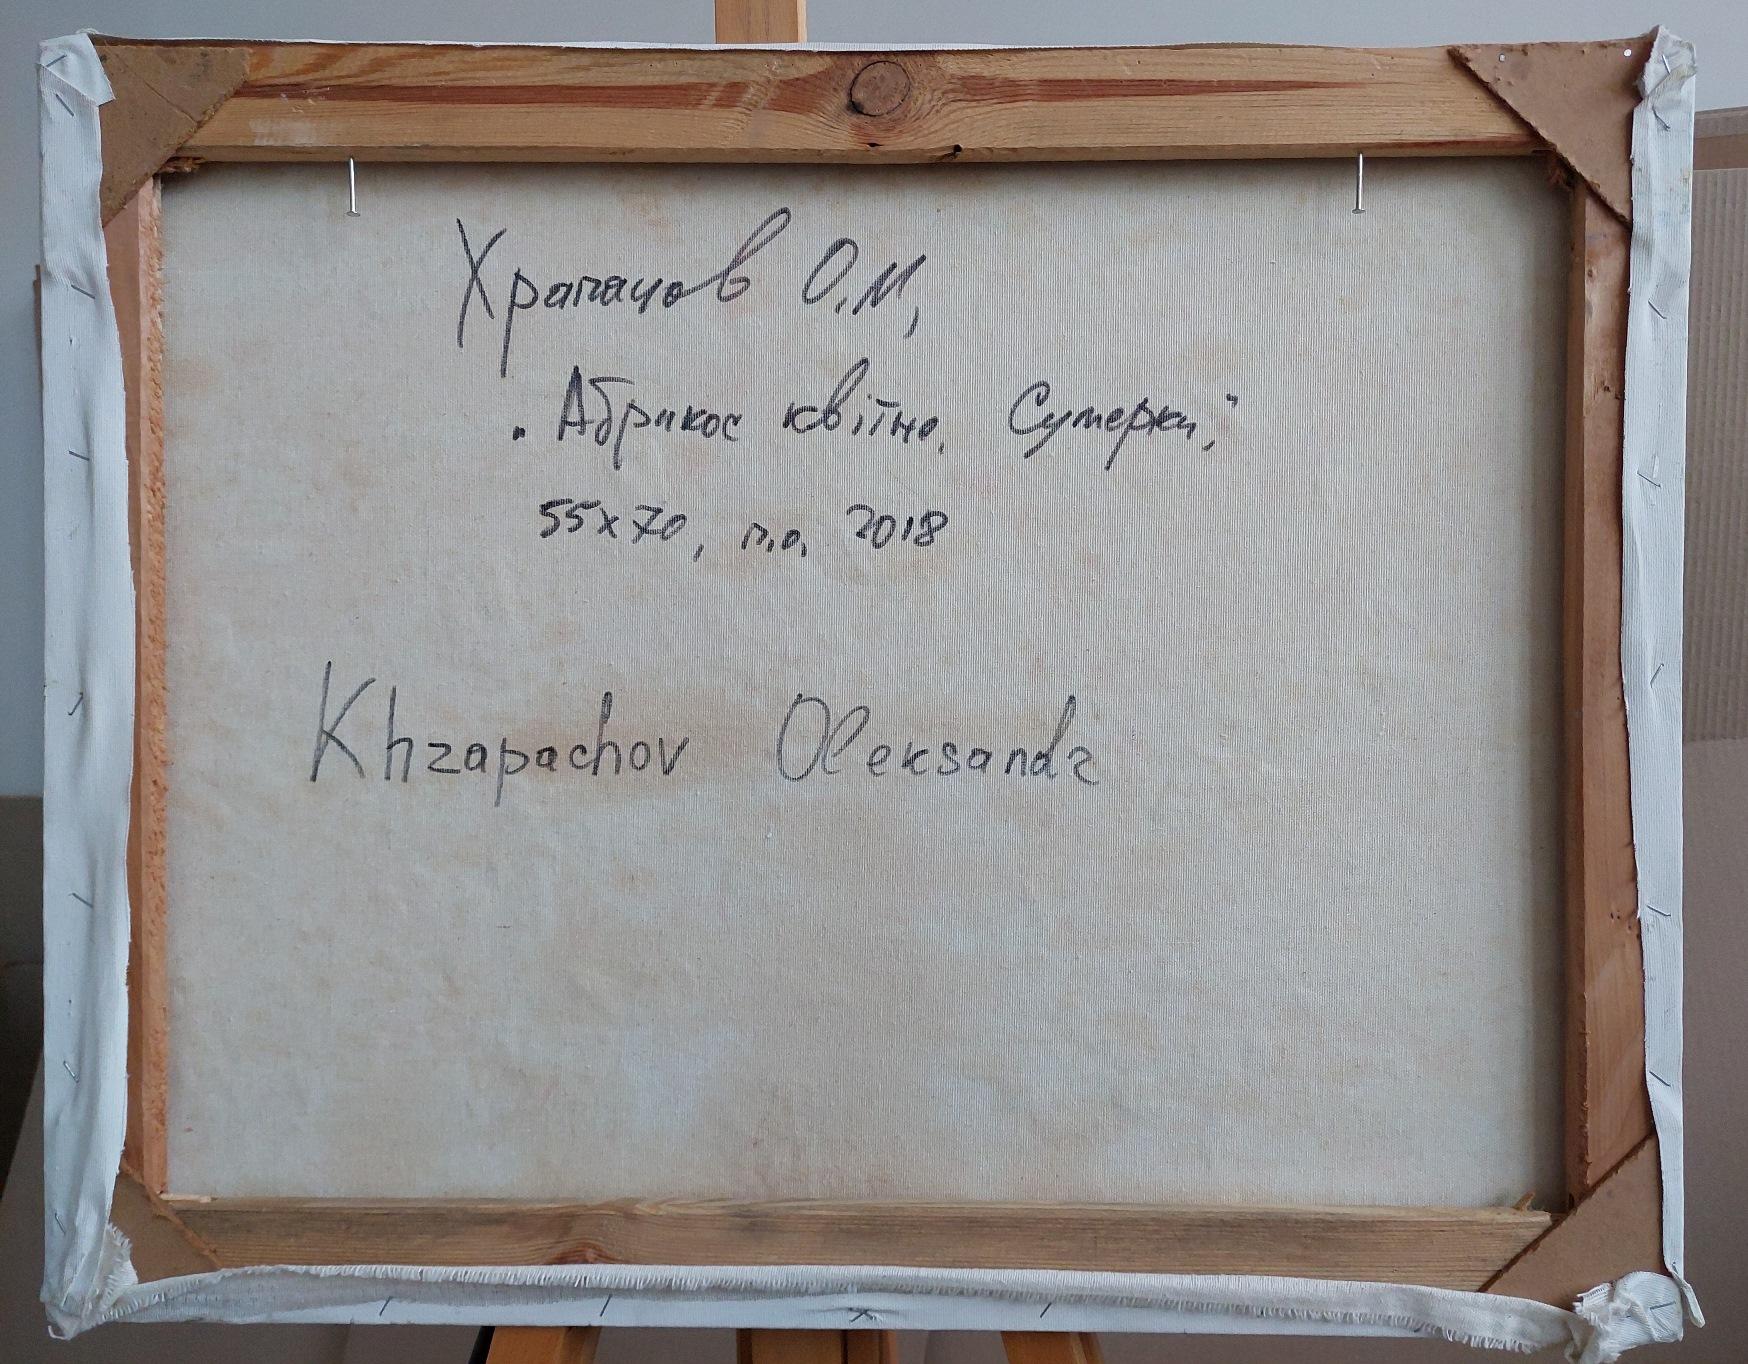 Храпачов О.М,
"Абрикос квітне. Сутерки",
55х70, п.о. 2018
Khrapachov Oleksandr